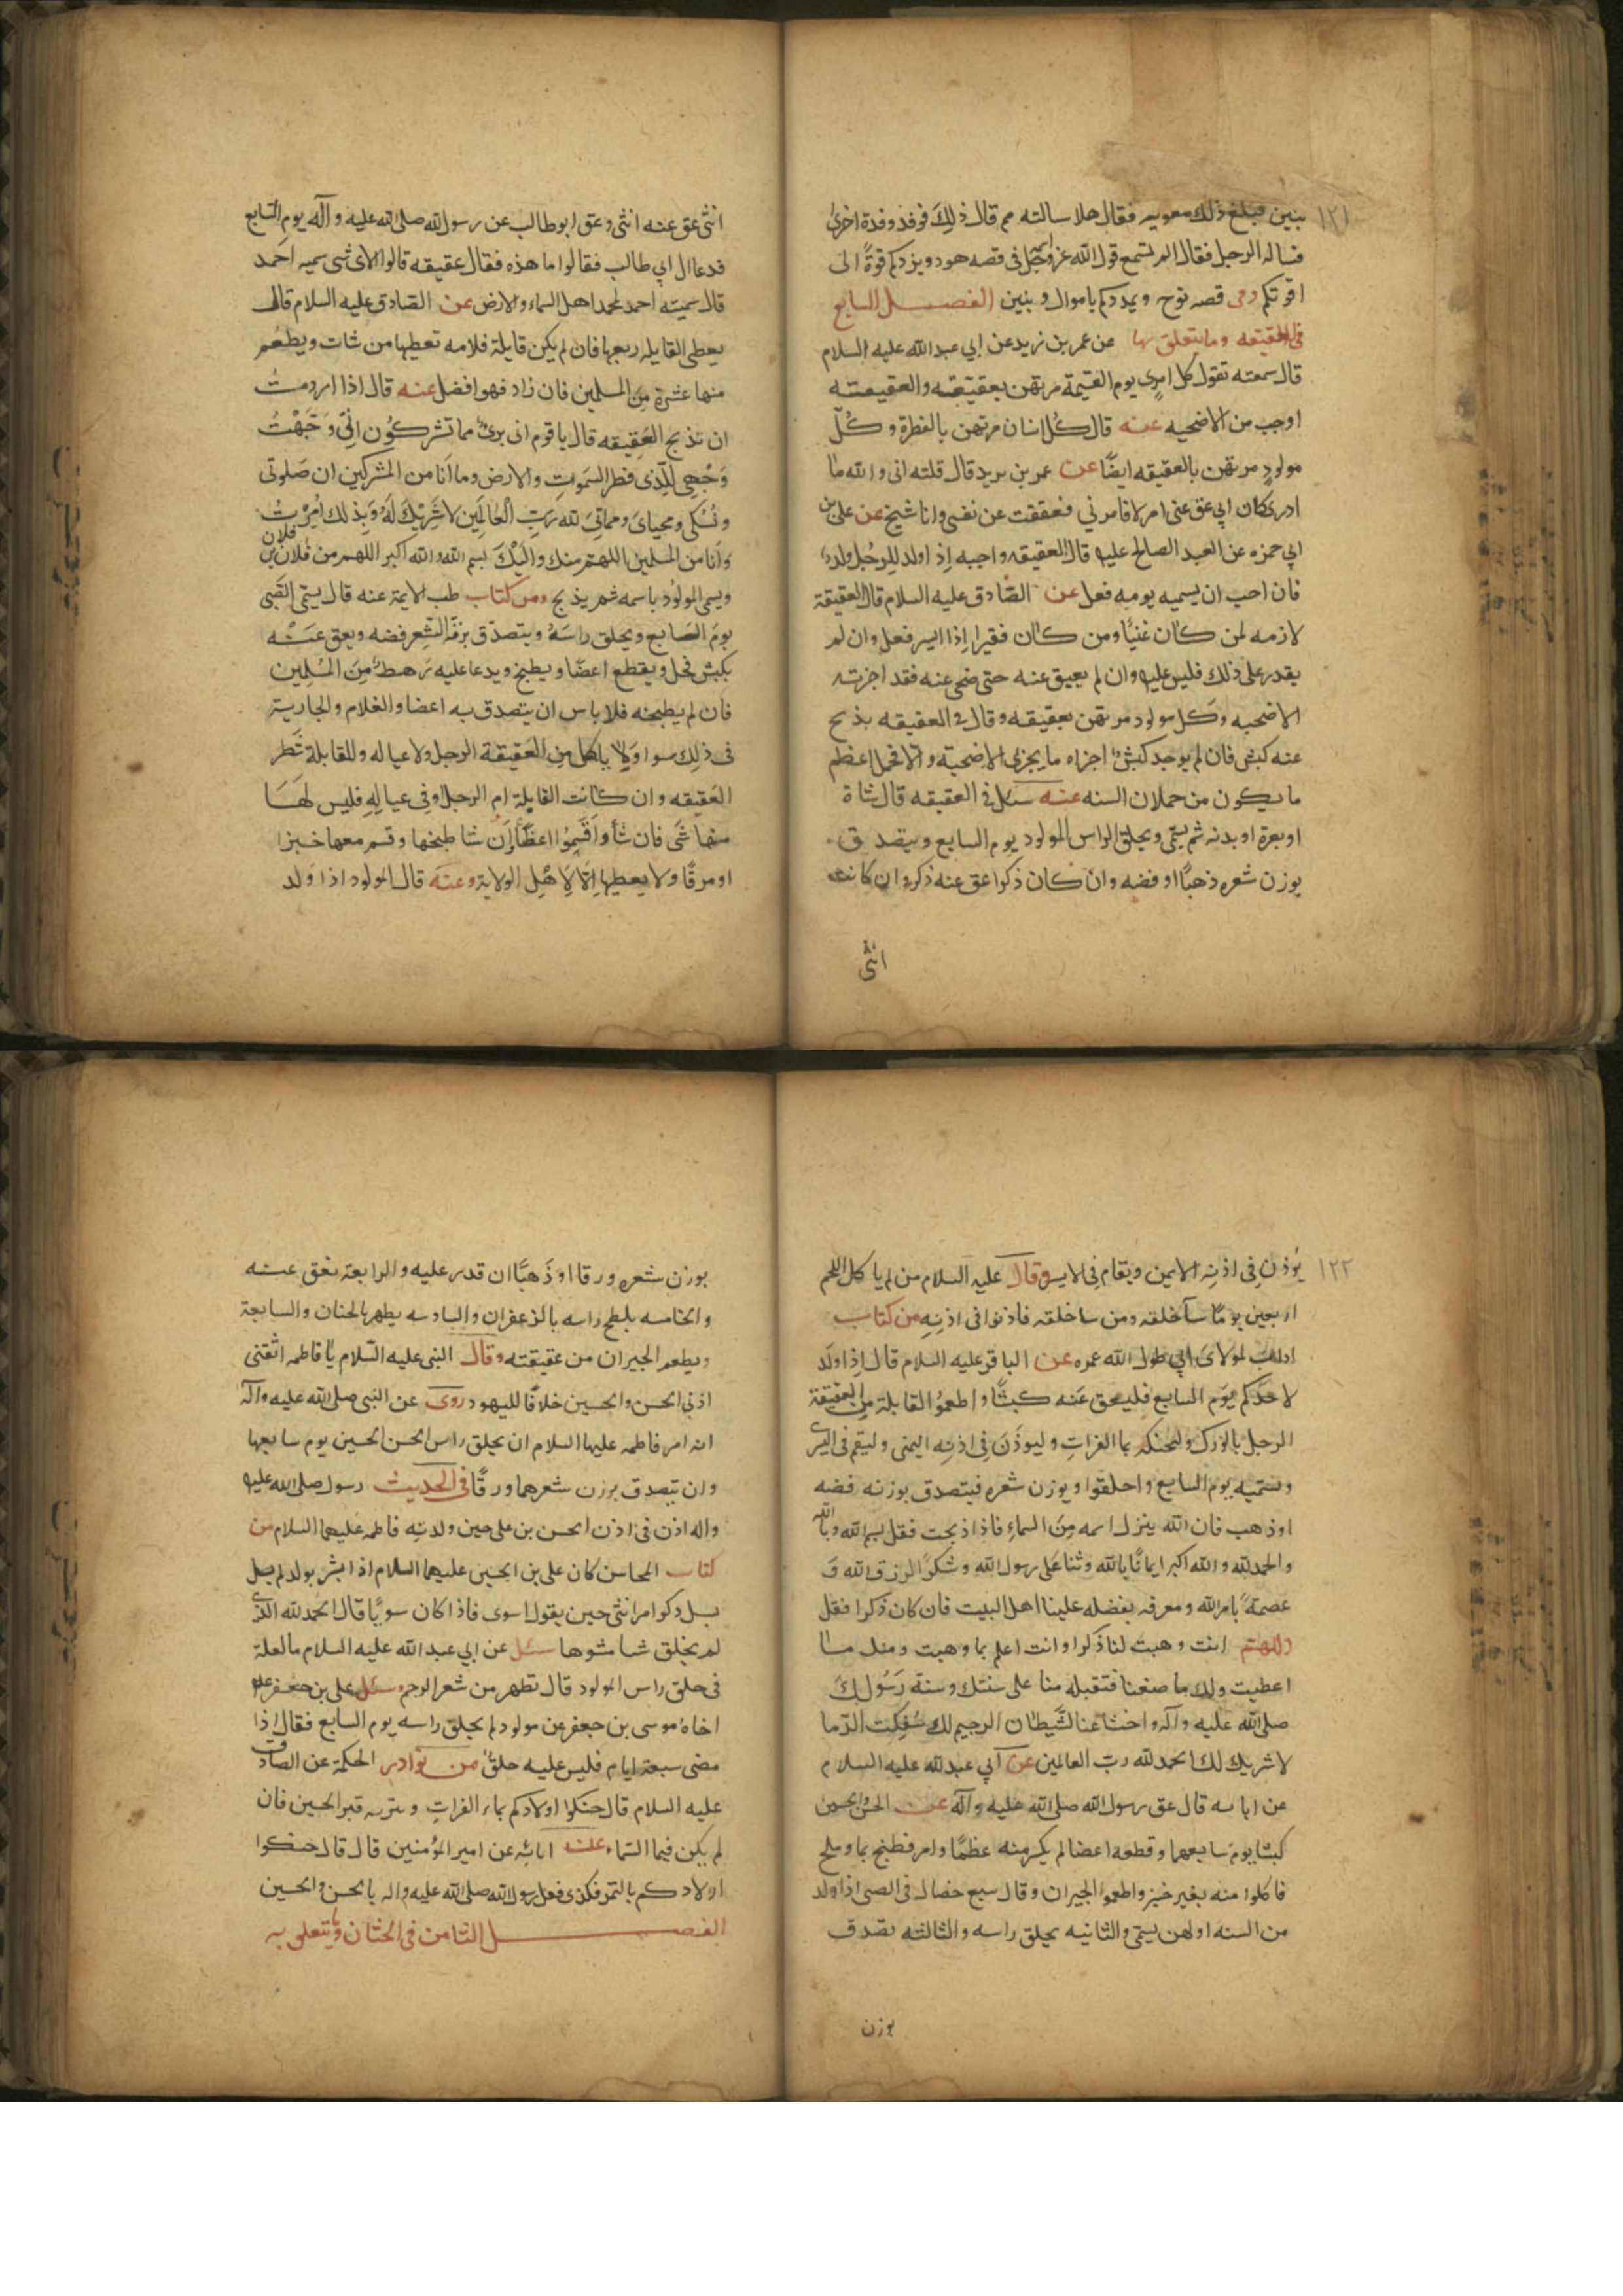 ١٢١
بنين فبلغ ذلك معويه فقال هلا سالته مم قال ذلك فوفد وفدة اخرى
فساله الرجل فقال الم تسمع قول الله عز وجل في قصه هود ويزدكم قوة الى
قوتكم وفى قصه نوح ويمددكم باموال وبنين الفصل السابع
فى العقيقه وما يتعلق بها عن عمر بن يزيد عن ابي عبد الله عليه السلام
قال سمعته تقول كل امرى يوم القيمة مرتهن بعقيقته والعقيقته
اوجب من الاضحيه عنه قال كل انسان مرتهن بالفطرة وكل
مولود مرتهن بالعقيقه ايضًا عن عمر بن يريد قال قلته انى والله ما
ادرى كان ابي عق عنى ام لا فامرني فعققت عن نفسى وانا شيخ عن على بن
ابي حمزه عن العبد الصالح عليه قال العقيقه واجبه اذ اولد للرجل ولد
فان احب ان يسميه يومه فعل عن الصادق عليه السلام قال العقيقة
لازمه لمن كان غنيًا ومن كان فقيرا اذا ايسر فعل وان لم
يقدر على ذلك فليس عليه وان لم يعيق عنه حتى ضحى عنه فقد اجزته
الاضحيه وكل مولود مرتهن بعقيقه وقال في العقيقه بذبح
عنه كبش فان لم يوجد كبش اجزاه ما يجزى الاضحية والا فحمل اعظم
ما يكون من حملان السنه عنه سئل في العقيقه قال شاة
او بعرة او بدنه ثم يسمى ويحلق الراس المولود يوم السابع ويتصدق
بوزن شعره ذهبًا او فضه وان كان ذكرا عق عنه ذكرا وان كانت
انثى
انثى عق عنه انثى وعق ابو طالب عن رسول الله صلى الله عليه وآله يوم السابع
فدعا ال ابي طالب فقالوا ما هذه فقال عقيقه قالوا لاى شى سميه احمد
قال سميته احمد لمحمد اهل السماء والارض عن الصادق عليه السلام قال
يعطى القايله ربعها فان لم يكن قايلة فلامه تعطيها من شات ويطعم
منها عشرة من المسلمين فان زاد فهو افضل عنه قال اذا اردمت
ان تذبح العقيقه قال يا قوم انى برئ مما تشركون انى وجهت
وجهى للذى فطر السموات والارض وما انا من المشركين ان صلوتى
ونسكى ومحياى ومماتى لله رب العالمين لا شريك له وبذلك امرت
وانا من المسلمين اللهم منك واليك بسم الله والله اكبر اللهم من فلان بن فلان
ويسمى المولود باسمه ثم يذبح ومن كتاب طب الايمة عنه قال يسمى الصبى
يوم السابع ويحلق راسه ويتصدق بزنة الشعر فضه ويعق عنه
بكبش فحل ويقطع اعضًا ويطبخ ويدعا عليه رهط من المسلمين
فان لم يطبخه فلا باس ان يتصدق به اعضا والغلام والجارية
فى ذلك سوا ولا ياكل من العقيقة الرجل ولا عياله وللقابلة شطر
العقيقه وان كانت القابلة ام الرجل او فى عياله فليس لها
منها شى فان شأ واقسموا اعضًا وان شا طبخها وقسم معها خبزا
او مرقًا ولا يعطيها الا لاهل الولاية وعنه قال المولود اذا ولد
١٢٢
يوذن فى اذنه الايمن ويقام فى الايسر وقال عليه السلام من لم ياكل اللحم
اربعين يومًا سآ خلقه ومن سا خلقه فاذنوا فى اذنه من كتاب
اداب لمولاى ابي طول الله عمره عن الباقر عليه السلام قال اذا ولد
لاحدكم يوم السابع فليعق عنه كبشًا واطعموا القابلة من العقيقة
الرجل بالورك وليحنكه بما الفرات وليوذن فى اذنه اليمنى وليقم فى اليسرى
وتسميه يوم السابع واحلقوا ويوزن شعره فيتصدق بوزنه فضه
او ذهب فان الله ينزل اسمه من السماء فاذا ذبحت فقل بسم الله وبالله
والحمد لله والله اكبر ايمانًا بالله وثنا على رسول الله وشكرًا لرزق الله و
عصمةً بامر الله ومعرفه بفضله علينا اهل البيت فان كان ذكرا فقل
اللهم انت وهبت لنا ذكرا وانت اعلم بما وهبت ومنك ما
اعطيت ولك ما صنعنا فتقبله منا على سنتك وسنة رسولك
صلى الله عليه وآله واخسا عنا الشيطان الرجيم لك سفكت الدما
لا شريك لك الحمد لله رب العالمين عن ابي عبد الله عليه السلام
عن ابائه قال عق رسول الله صلى الله عليه وآله عن الحسن والحسين
كبشا يوم سابعهما وقطعه اعضا لم يكسر منه عظمًا وامر فطبخ بما وملح
فاكلوا منه بغير خبز واطعموا الجيران وقال سبع خصال فى الصبى اذا ولد
من السنه اولهن يسمى والثانيه يحلق راسه والثالثه تصدق
بوزن
بوزن شعره ورقا او ذهبًا ان قدر عليه والرابعة نعق عنه
والخامسه يلطخ راسه بالزعفران والسادسه يطهر بالختان والسابعة
ويطعم الجيران من عقيقته وقال النبى عليه السلام يا فاطمه اثقبى
اذنى الحسن والحسين خلافًا لليهود روى عن النبى صلى الله عليه وآله
انه امر فاطمه عليها السلام ان يحلق راس الحسن الحسين يوم سابعها
وان تتصدق بوزن شعرهما ورقًا فى الحديث رسول صلى الله عليه
واله اذن فى اذن الحسن بن على حين ولدته فاطمه عليهما السلام من
كتاب المحاسن كان على بن الحسين عليهما السلام اذا بشر بولد لم يسل
يسل ذكر ام انثى حين يقول اسوى فاذا كان سويًا قال الحمد لله الذى
لم يخلق شيا مشوها سئل عن ابي عبد الله عليه السلام ما العلة
فى حلق راس المولود قال تطهر من شعر الرحم وسئل على بن جعفر
اخاه موسى بن جعفر عن مولود لم يحلق راسه يوم السابع فقال اذا
مضى سبعة ايام فليس عليه حلق من نوادر الحكمة عن الصادق
عليه السلام قال حنكوا اولادكم بماء الفرات وبتربه قبر الحسين فان
لم يكن فبماء السماء عنه ابائه عن امير المؤمنين قال قال حنكوا
اولادكم بالتمر فكذى فعل رسول الله صلى الله عليه واله بالحسن والحسين
الفصل الثامن فى الختان وما يتعلق به